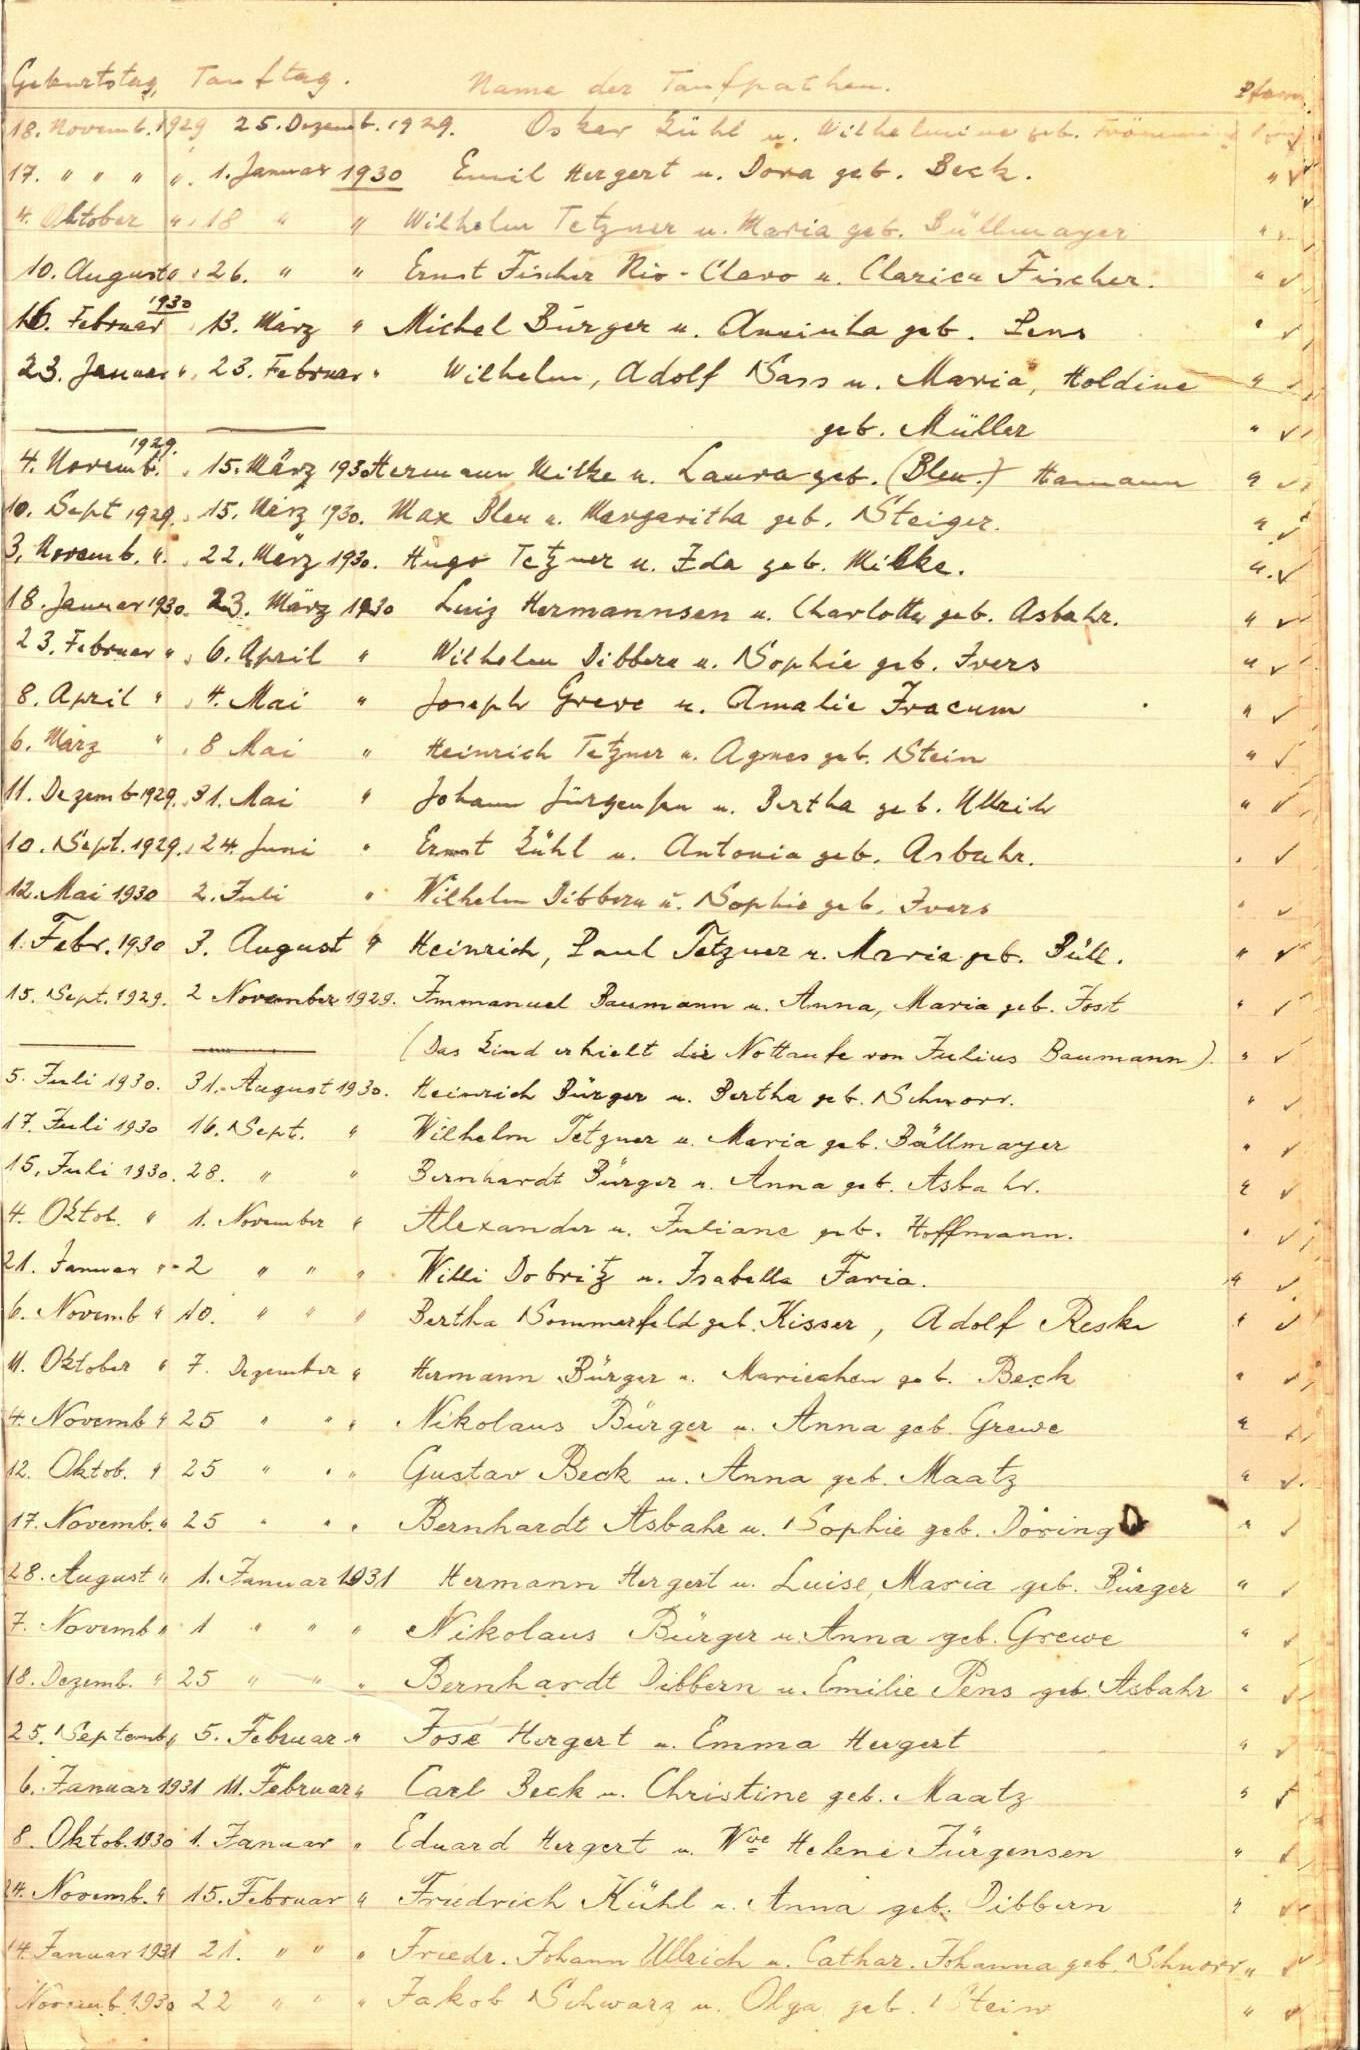 Geburtstag Tauftag. Name der Taufpathen. Pfarrer
18. Novemb. 1929 25. Dezemb. 1929. Oskar Kühl u. Wilhelmine geb.
17. " " " " 1. Januar 1930 Emil Hergert u. Dora geb. Beck. "
4. Oktober " 18 " " Wilhelm Tetzner u. Maria geb. Büllmayer "
10. August " 26. " " Ernst Fischer Rio-Claro u. Clarica Fischer. "
1930
16. Februar 13. März " Michel Bürger u. Anninha geb. Pens "
23. Januar " 23. Februar " Wilhelm, Adolf Sass u. Maria, Holdine "
geb. Müller "
1929.
4. Novemb. 15. März 1930 Hermann Milke u. Laura geb. (Bleu.) Hamann "
10. Sept 1929. 15. März 1930. Max Bleu u. Margaritha geb. Steiger. "
3. Novemb. ". 22. März 1930. Hugo Tetzner u. Ida geb. Milke. "
18. Januar 1930. 23. März 1930 Luiz Hermannsen u. Charlotte geb. Asbahr. "
23. Februar " 6. April " Wilhelm Dibbern u. Sophie geb. Ivers "
8. April " 4. Mai " Joseph Greve u. Amalie Fracum "
6. März " 8 Mai " Heinrich Tetzner u. Agnes geb. Stein "
11. Dezemb 1929. 31. Mai " Johann Jürgensen u. Bertha geb. Ullrich "
10. Sept. 1929. 24. Juni " Ernst Kühl u. Antonia geb. Asbahr. "
12. Mai 1930 2. Juli " Wilhelm Dibbern u. Sophie geb. Ivers "
1. Febr. 1930 3. August " Heinrich, Paul Tetzner u. Maria geb. Büll. "
15. Sept. 1929. 2 November 1929. Immanuel Baumann u. Anna, Maria geb. Jost "
(Das Kind erhielt die Nottaufe von Julius Baumann). "
5. Juli 1930. 31. August 1930. Heinrich Bürger u. Bertha geb. Schnorr. "
17. Juli 1930 16. Sept. " Wilhelm Tetzner u. Maria geb. Büllmayer "
15. Juli 1930. 28. " " Bernhardt Bürger u. Anna geb. Asbahr. "
4. Oktob. " 1. November " Alexander u. Juliane geb. Hoffmann. "
21. Januar " 2 " " " Willi Dobritz u. Isabella Faria. "
6. Novemb " 10. " " " Bertha Sommerfeld geb. Kisser, Adolf Reske "
11. Oktober " 7. Dezember " Hermann Bürger u. Mariechen geb. Beck "
4. Novemb " 25 " " " Nikolaus Bürger u. Anna geb. Grewe "
12. Oktob. " 25 " " " Gustav Beck u. Anna geb. Maatz "
17. Novemb. " 25 " " " Bernhardt Asbahr u. Sophie geb. Döring "
28. August " 1. Januar 1931 Hermann Hergert u. Luise, Maria geb. Bürger "
7. Novemb " 1 " " " Nikolaus Bürger u. Anna geb. Grewe "
18. Dezemb. " 25 " " " Bernhardt Dibbern u. Emilie Pens geb. Asbahr "
25. Septemb " 5. Februar " José Hergert u. Emma Hergert "
6. Januar 1931 11. Februar " Carl Beck u. Christine geb. Maatz "
8. Oktob. 1930 1. Januar " Eduard Hergert u. Wwe Helene Jürgensen "
24. Novemb. " 15. Februar " Friedrich Kühl u. Anna geb. Dibbern "
14. Januar 1931 21. " " " Friedr. Johann Ullrich u. Cathar. Johanna geb. Schnorr "
Novemb. 1930 22 " " " Jakob Schwarz u. Olga geb. Stein "